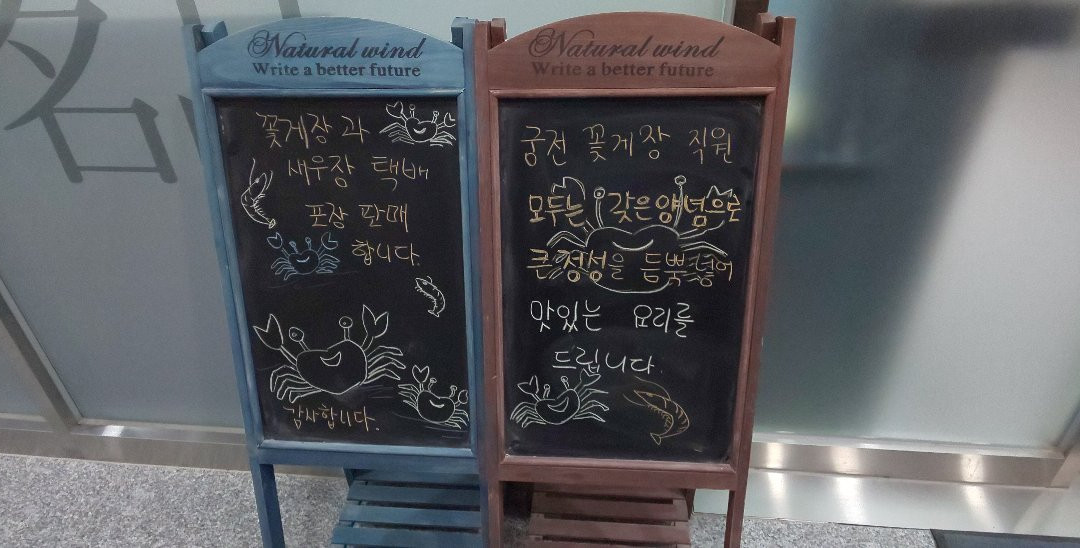 Natural wind
Write a better future
꽃게장 과
새우장 택배
포장 판매
합니다.
감사합니다.
Natural wind
Write a better future
궁전 꽃게장 직원
모두는 갖은양념으로
큰 정성을 듬뿍넣어
맛있는 요리를
드립니다.
名